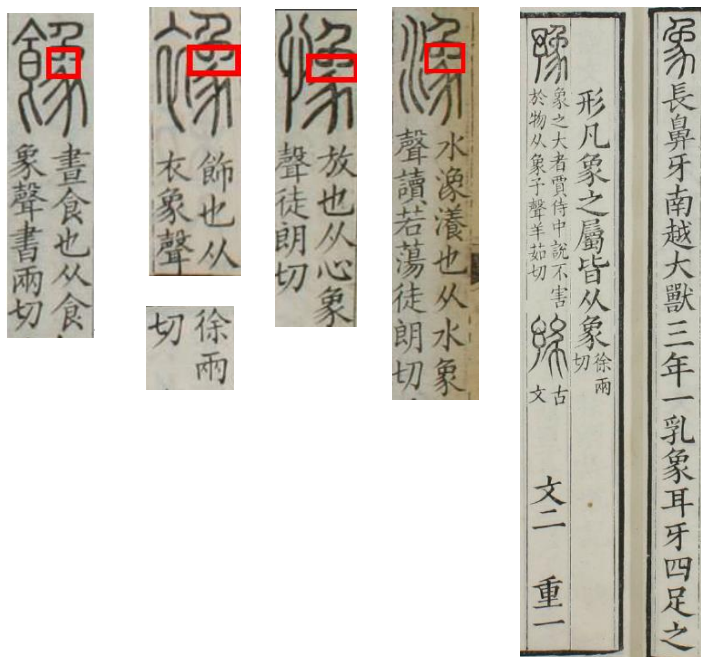 晝食也从食
象聲書兩切
襐
飾也从
衣象聲
徐兩
切
放也从心象
聲徒朗切
潒
水潒瀁也从水象
聲讀若蕩徒朗切
象長鼻牙南越大獸三年一乳象耳牙四足之
形凡象之屬皆从象徐兩
切
豫
象之大者賈侍中說不害
於物从象予聲羊茹切
古
文
文二 重一